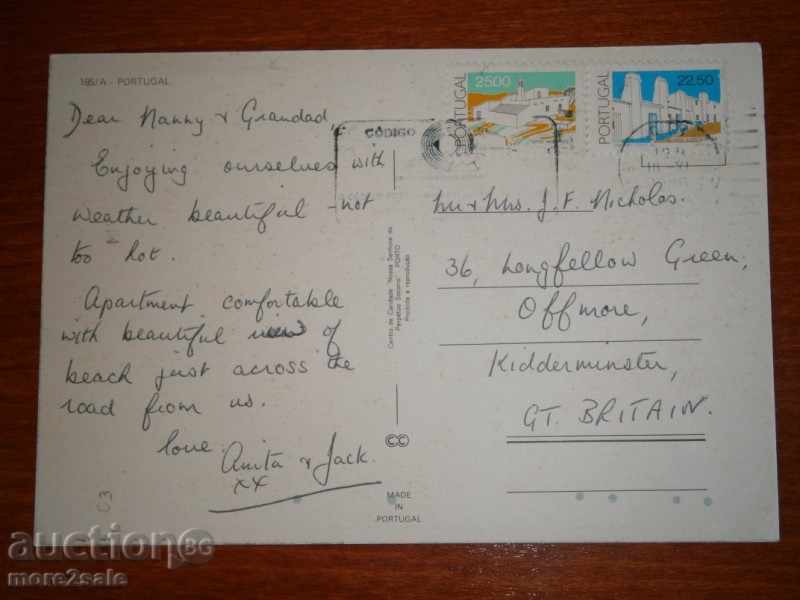 185/A - PORTUGAL
Dear Nanny & Grandad,
Enjoying ourselves with
weather beautiful - not
too hot.
Apartment comfortable
with beautiful view of
beach just across the
road from us.
love
Anita & Jack.
xx
C3
PORTUGAL
2500
PORTUGAL
22.50
CÓDIGO
Mr & Mrs. J. F. Nicholas.
36, Longfellow Green,
Offmore,
Kidderminster,
GT. BRITAIN.
Centro de Caridade "Nossa Senhora do
Perpétuo Socorro" PORTO
Proibida a reprodução
MADE
IN
PORTUGAL
auction86
more2sale